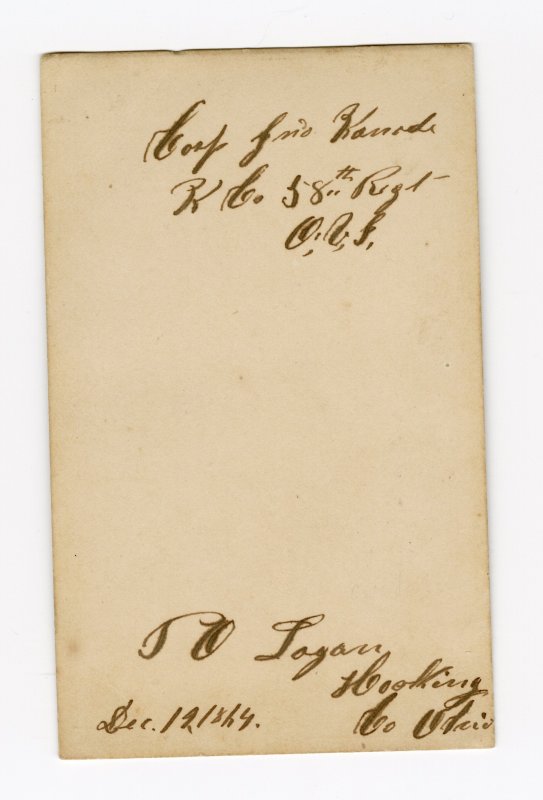 Corp Jno Kanode
K Co 58th Regt
O.V.I.
P O Logan
Hocking
Dec. 12 1864. Co Ohio